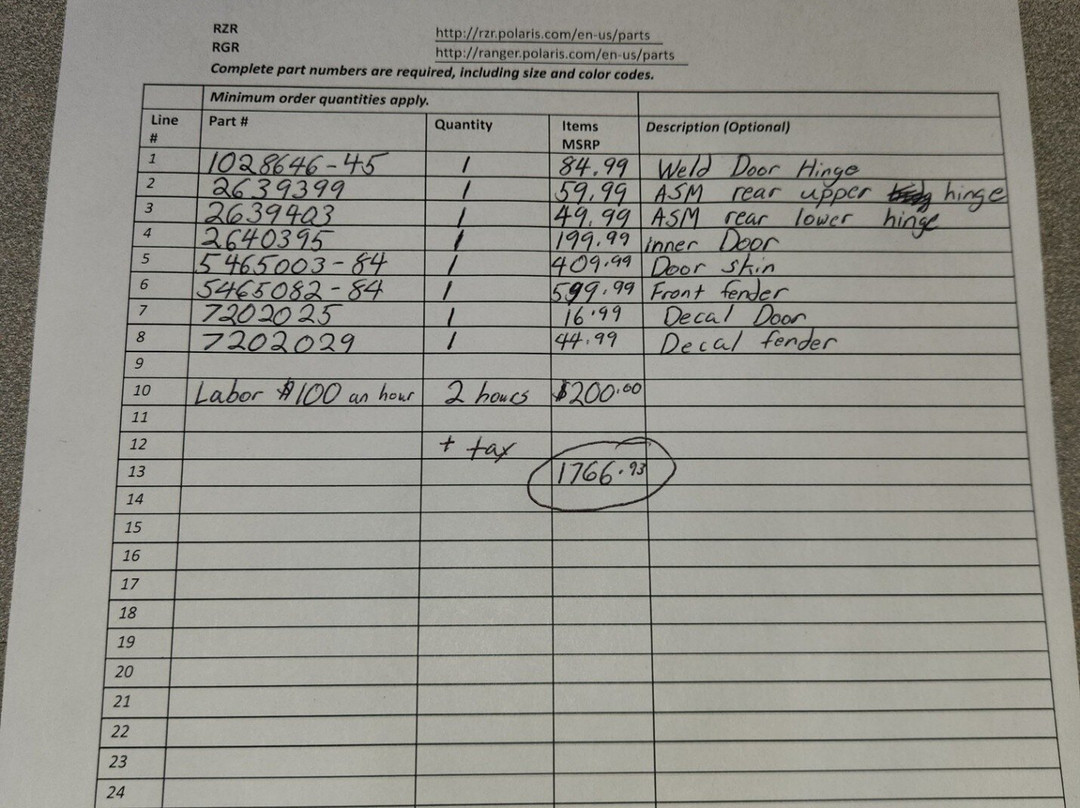 RZR http://rzr.polaris.com/en-us/parts
RGR http://ranger.polaris.com/en-us/parts
Complete part numbers are required, including size and color codes.
Minimum order quantities apply.
Line # Part # Quantity Items MSRP Description (Optional)
1 1028646-45 1 84.99 Weld Door Hinge
2 2639399 1 59.99 ASM rear upper hinge
3 2639403 1 49.99 ASM rear lower hinge
4 2640395 1 199.99 inner Door
5 5465003-84 1 409.99 Door skin
6 5465082-84 1 599.99 Front fender
7 7202025 1 16.99 Decal Door
8 7202029 1 44.99 Decal fender
9
10 Labor $100 an hour 2 hours $200.00
11
12 + tax
13 1766.93
14
15
16
17
18
19
20
21
22
23
24